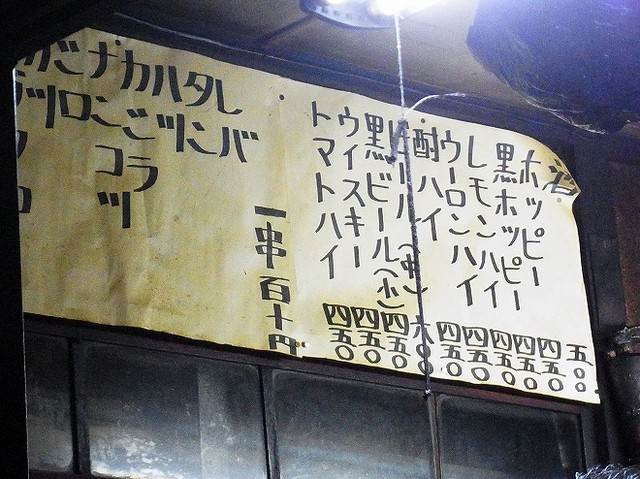 酒 五〇〇
ホッピー 四五〇
黒ホッピー 四五〇
レモンハイ 四五〇
ウーロンハイ 四五〇
酎ハイ 四五〇
ビール(中) 六〇〇
黒ビール(小) 四五〇
ウイスキー 四五〇
トマトハイ 四五〇
一串百十円
レバ
タン
ハツ
カシラ
ナンコツ
シロ